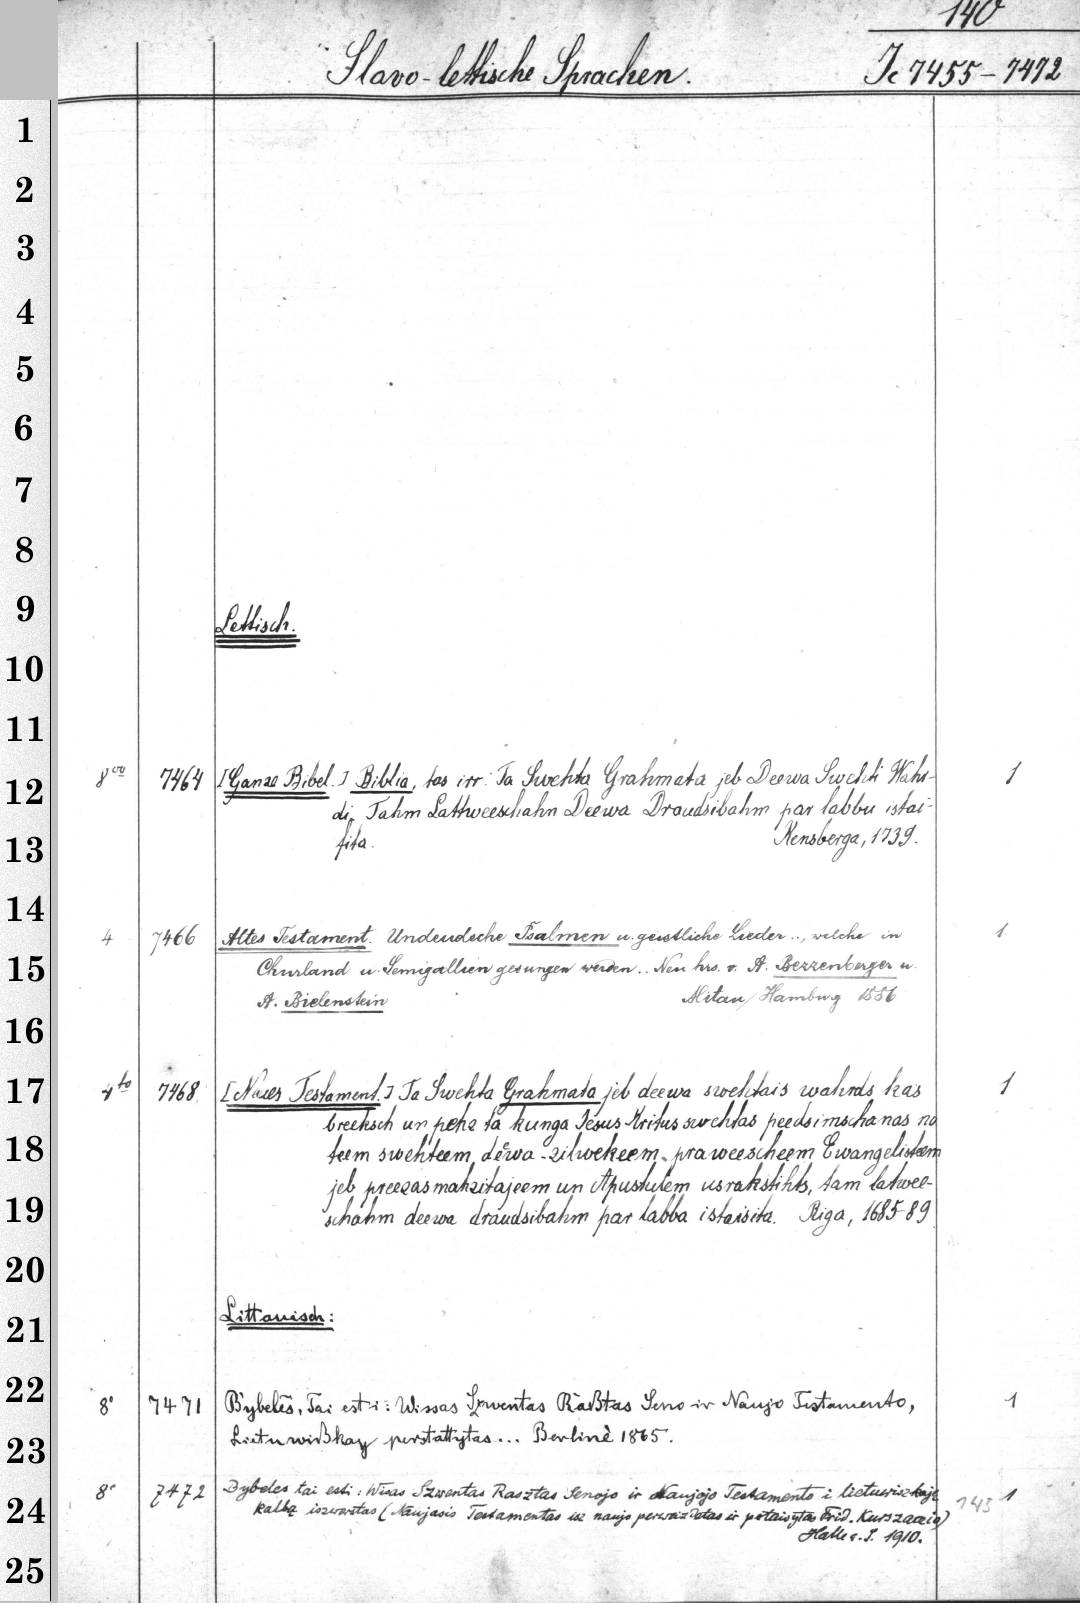 140
Slavo-lettische Sprachen. Ic 7455-7472
1
2
3
4
5
6
7
8
9
Lettisch.
10
11
12
8vo 7464 [Ganze Bibel.] Biblia, tas irr: Ta Swehta Grahmata jeb Deewa Swehti Wahr- 1
di, Tahm Lattweeschahn Deewa Draudsibahm par labbu istai-
13
sita. Kensberga, 1739.
14
4 7466 Altes Testament. Undeudsche Psalmen u. geistliche Lieder.., welche in 1
15
Churland u. Semigallien gesungen werden.. Neu hrs. v. A. Bezzenberger u.
A. Bielenstein Mitau/Hamburg 1886
16
17
4to 7468 [Neues Testament.] Ta Swehta Grahmata jeb deewa swehtais wahrds kas 1
preeksch un pehz ta kunga Jesus Kritus swehtas peedsimschanas no
18
teem swehteem, deewa-zilwekeem, praweescheem Ewangelisteem
jeb preezasmahzitajeem un Apustulem usrakstihts, tam latwee-
19
schahm deewa draudsibahm par labba istaisita. Riga, 1685-89
20
Littauisch:
21
22
8° 7471 Bybelës, Tai esti: Wissas Szwentas Raßtas Seno ir Naujo Testamento, 1
Lietuwißkay perstattytas... Berlinè 1865.
23
8° 7472 Bybeles tai esti: Wisas Szwentas Rasztas Senojo ir Naujojo Testamento i lietuwiszkąję 143 1
24
kalbą iszwerstas (Naujasis Testamentas isz naujo perweizdėtas ir pataisytas Frid. Kurszaczio)
Halle a. S. 1910.
25